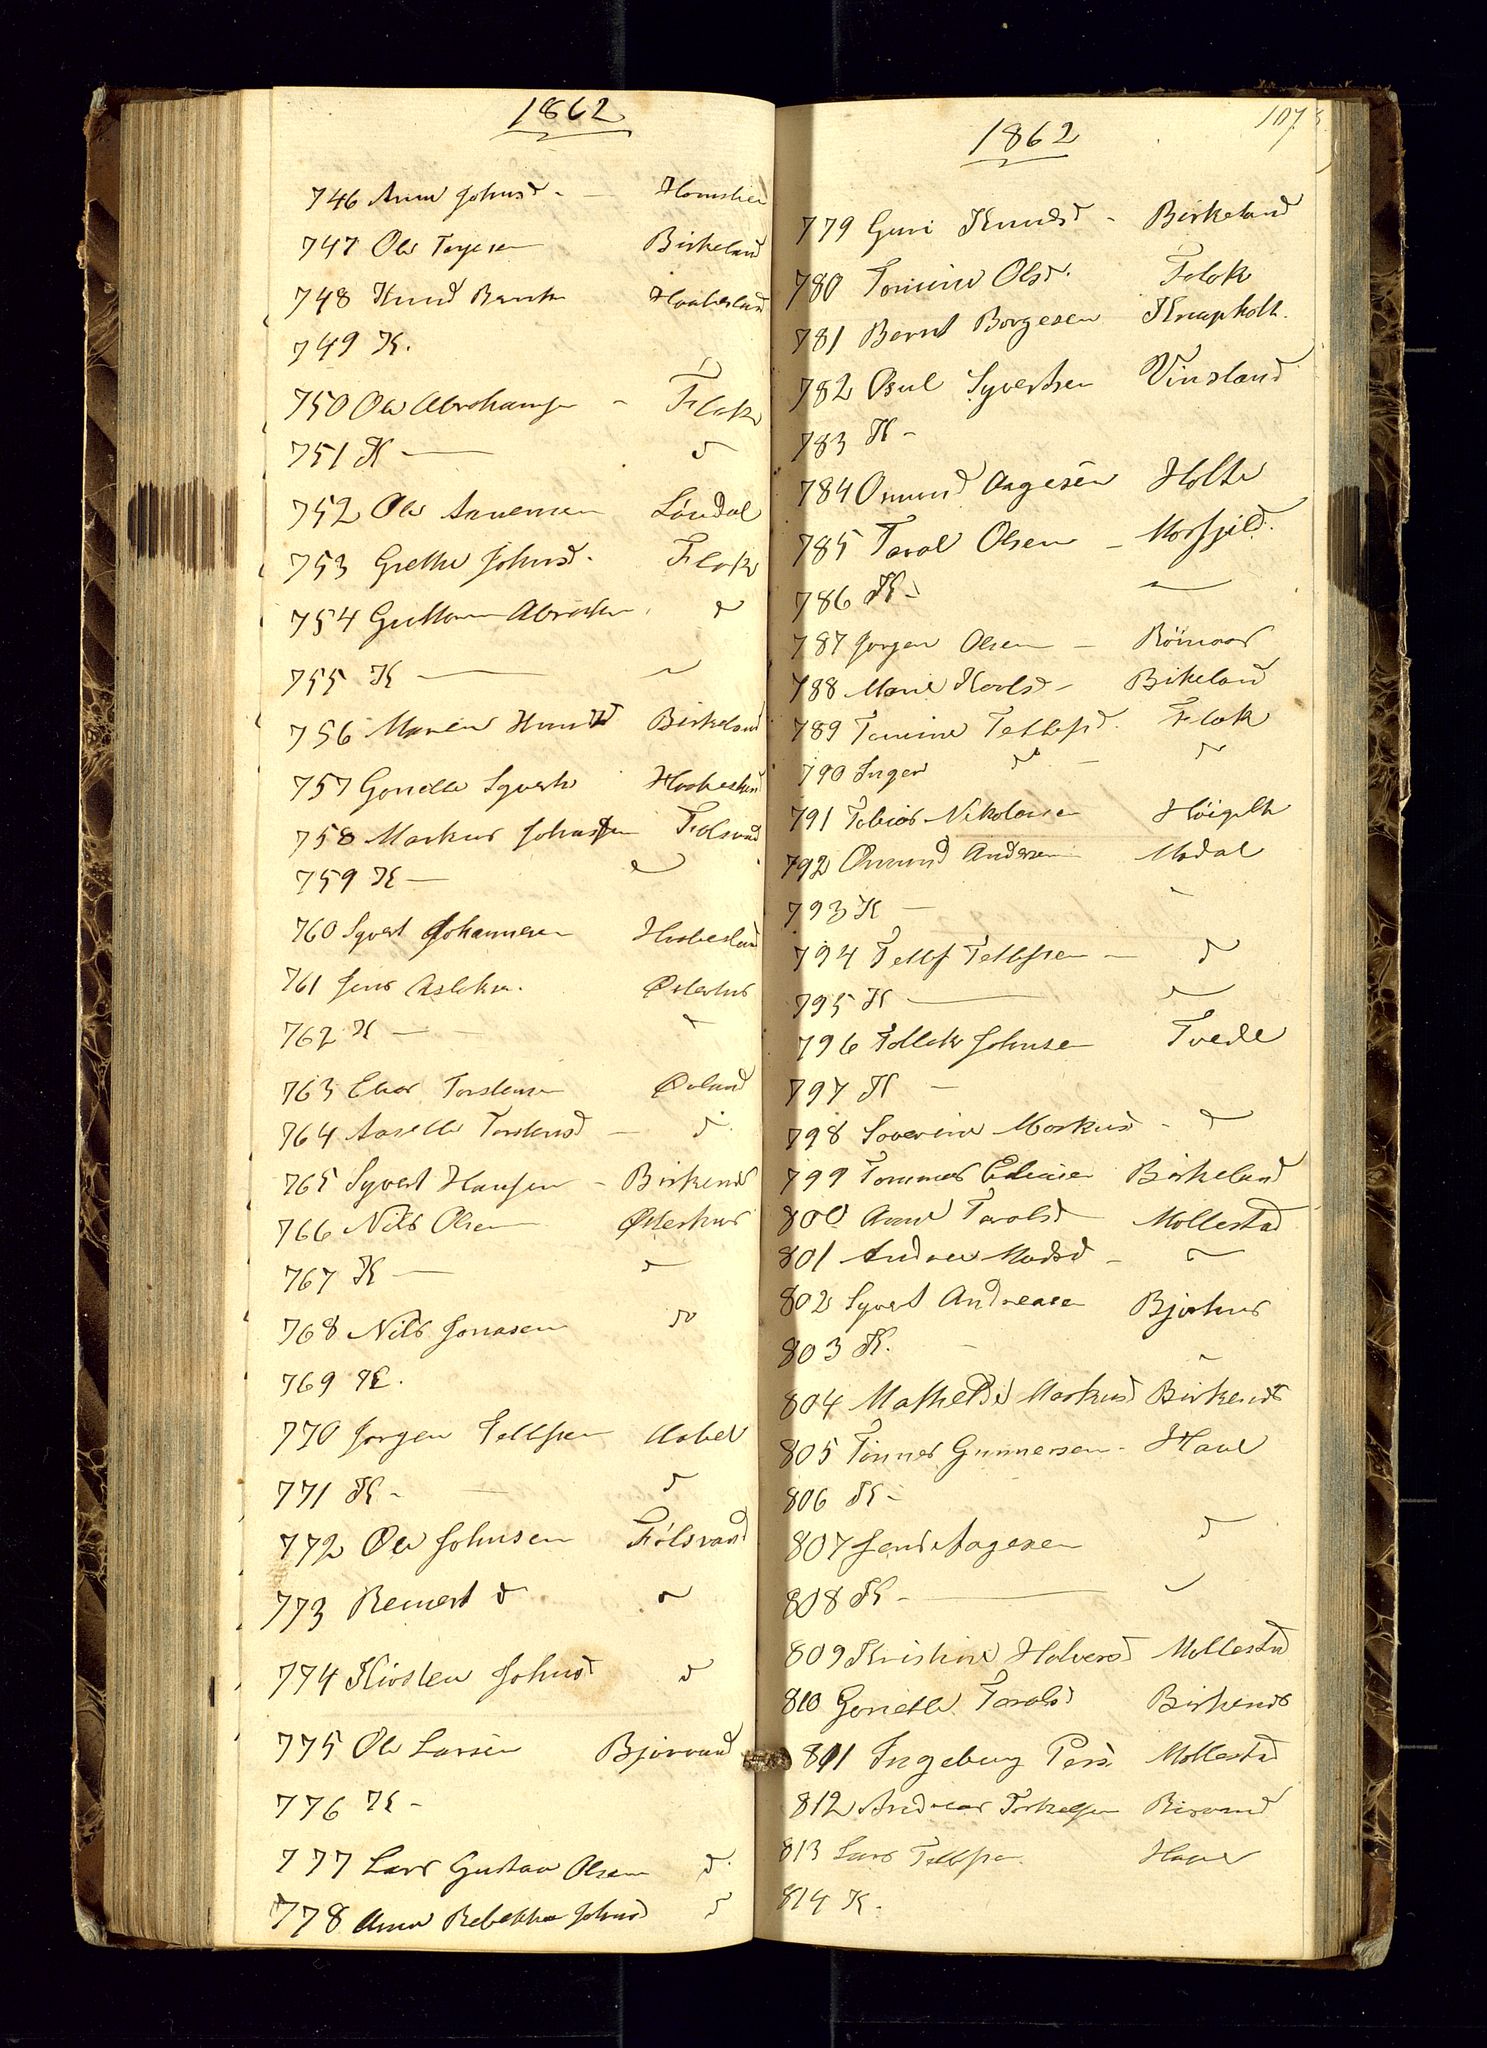 1862
746 Anne Johnsd -
747 Ole Tagesen Birkeland
748 Knud Bentsen Haabesland
749 K.
750 Ole Abrahamsen - Flak
751 K — d
752 Ole Løndal
753 Grethe Johnsd. Flak
754 Guttorm Abrahamsen d
755 K —
756 Maren Knudsd Birkeland
757 Gonelle Syverts Haabesland
758 Markus Johnsen Fidsvand
759 K —
760 Syvert Johannesen Haabesland
761 Jens Aslaksen. Østerhus
762 K —
763 Elias Torstensen Øvland
764 Aaselle Torstensd — d
765 Syvert Hansen - Birkenes
766 Nils Olsen Østerhus
767 K —
768 Nils Jonasen do
769 K.
770 Jørgen Tellefsen Aabel
771 K - d
772 Ole Johnsen Fidsvand
773 Reinert d
774 Kirsten Johnsd d
775 Ole Larsen Bjorvand
776 K -
777 Lars Gustav Olsen d
778 Anne Rebekka Johnsd d
1862
107
779 Guri Knudsd - Birkeland
780 Tomine Olsd. Flak
781 Bernt Borgesen Knapholt.
782 Osul Syvertsen Vinsland
783 K -
784 Osmund Aagesen Holte
785 Taral Olsen - Mosfjeld.
786 K -
787 Jorgen Olsen -
788 Marie Karlsd - Bikeland
789 Tomine Tellefsd. Flak
790 Inger d
791 Tobias Nikolaisen Høigilt
792 Osmund Andersen Modal
793 K —
794 Tellef Tellefsen - d
795 K —
796 Tellak Johnsen Tvede
797 K —
798 Severine Markusd - d
799 Tommas Edvasen Birkeland
800 Anne Taralsd Mollestad
801 Andrea Madsd -
802 Syvert Andreasen Bjorhus
803 K.
804 Mathelde Markusd Birkenes
805 Tønnes Gunnersen - Haave
806 K -
807 Jens Aagesen d
808 K -
809 Kristine Halversd Mollestad
810 Gonelle Taralsd Birkenes
811 Ingeborg Pers Mollestad
812 Andreas Torkelsen Birvand
813 Lars Tellefsen Haave
814 K.